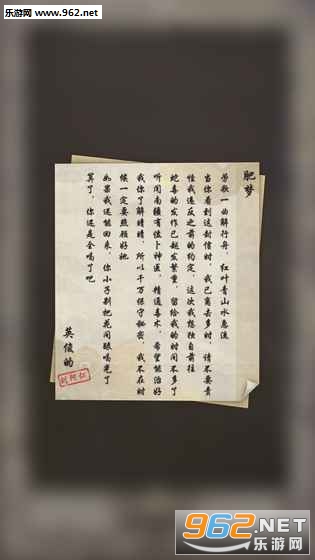 乐游网 www.962.net
肥梦
劳歌一曲解行舟，红叶青山水急流
当你看到这封信时，我已离去多时，请不要责
怪我违反之前的约定，这次我想独自前往
蛇毒的发作已越发繁重，留给我的时间不多了
听闻南疆有位卜神医，精通毒术，希望能治好
我你了解晴晴，所以千万保守秘密，我不在时
候一定要照顾好她
如果我还能回来，你小子别把花间眠喝光了
算了，你还是全喝了吧
英俊的
刘阿仁
962.NET
乐游网